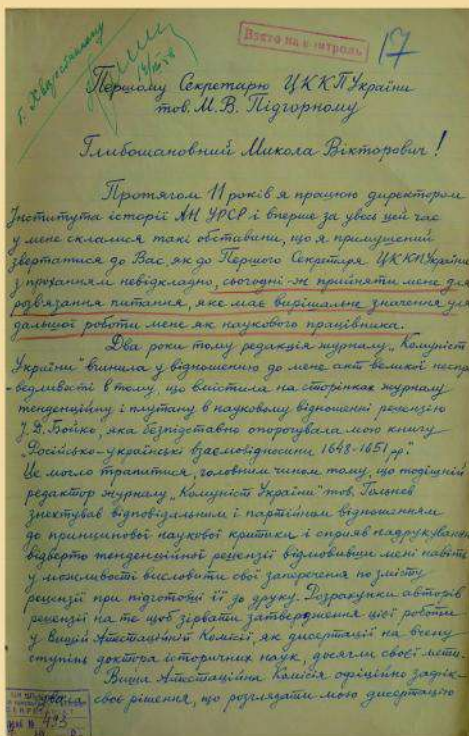 т. Хворостяному
Взято на контроль
17
Першому Секретарю ЦК КП України
тов. М. В. Підгорному
Глибошановний Микола Вікторович!
Протягом 11 років я працюю директором
Інститута історії АН УРСР і вперше за увесь цей час
у мене склалися такі обставини, що я примушений
звертатися до Вас, як до Першого Секретаря ЦК КП України
з проханням невідкладно, сьогодні-ж прийняти мене для
розвязання питання, яке має вирішальне значення для
дальшої роботи мене як наукового працівника.
Два роки тому редакція журналу „Комуніст
України" вчинила у відношенню до мене акт великої неспра-
ведливості в тому, що вмістила на сторінках журналу
тенденційну і плутану в науковому відношенні рецензію
І. Д. Бойко, яка безпідставно опорочувала мою книгу
„Російсько-українські взаємовідносини 1648-1651 рр."
Це могло трапитися, головним чином тому, що тодішній
редактор журналу „Комуніст України" тов.
знехтував відповідальним і партійним відношенням
до принципової наукової критики і сприяв надрукуванню
відверто тенденційної рецензії відмовивши мені навіть
у можливості висловити свої заперечення по змісту
рецензії при підготовці її до друку. Розрахунки авторів
рецензії на те щоб зірвати затвердження цієї роботи
у Вищій Атестаційній Комісії, як дисертації на вчену
ступінь доктора історичних наук, досягли своєї мети.
Вища Атестаційна Комісія офіційно
своє рішення, що розглядати мою дисертацію
493